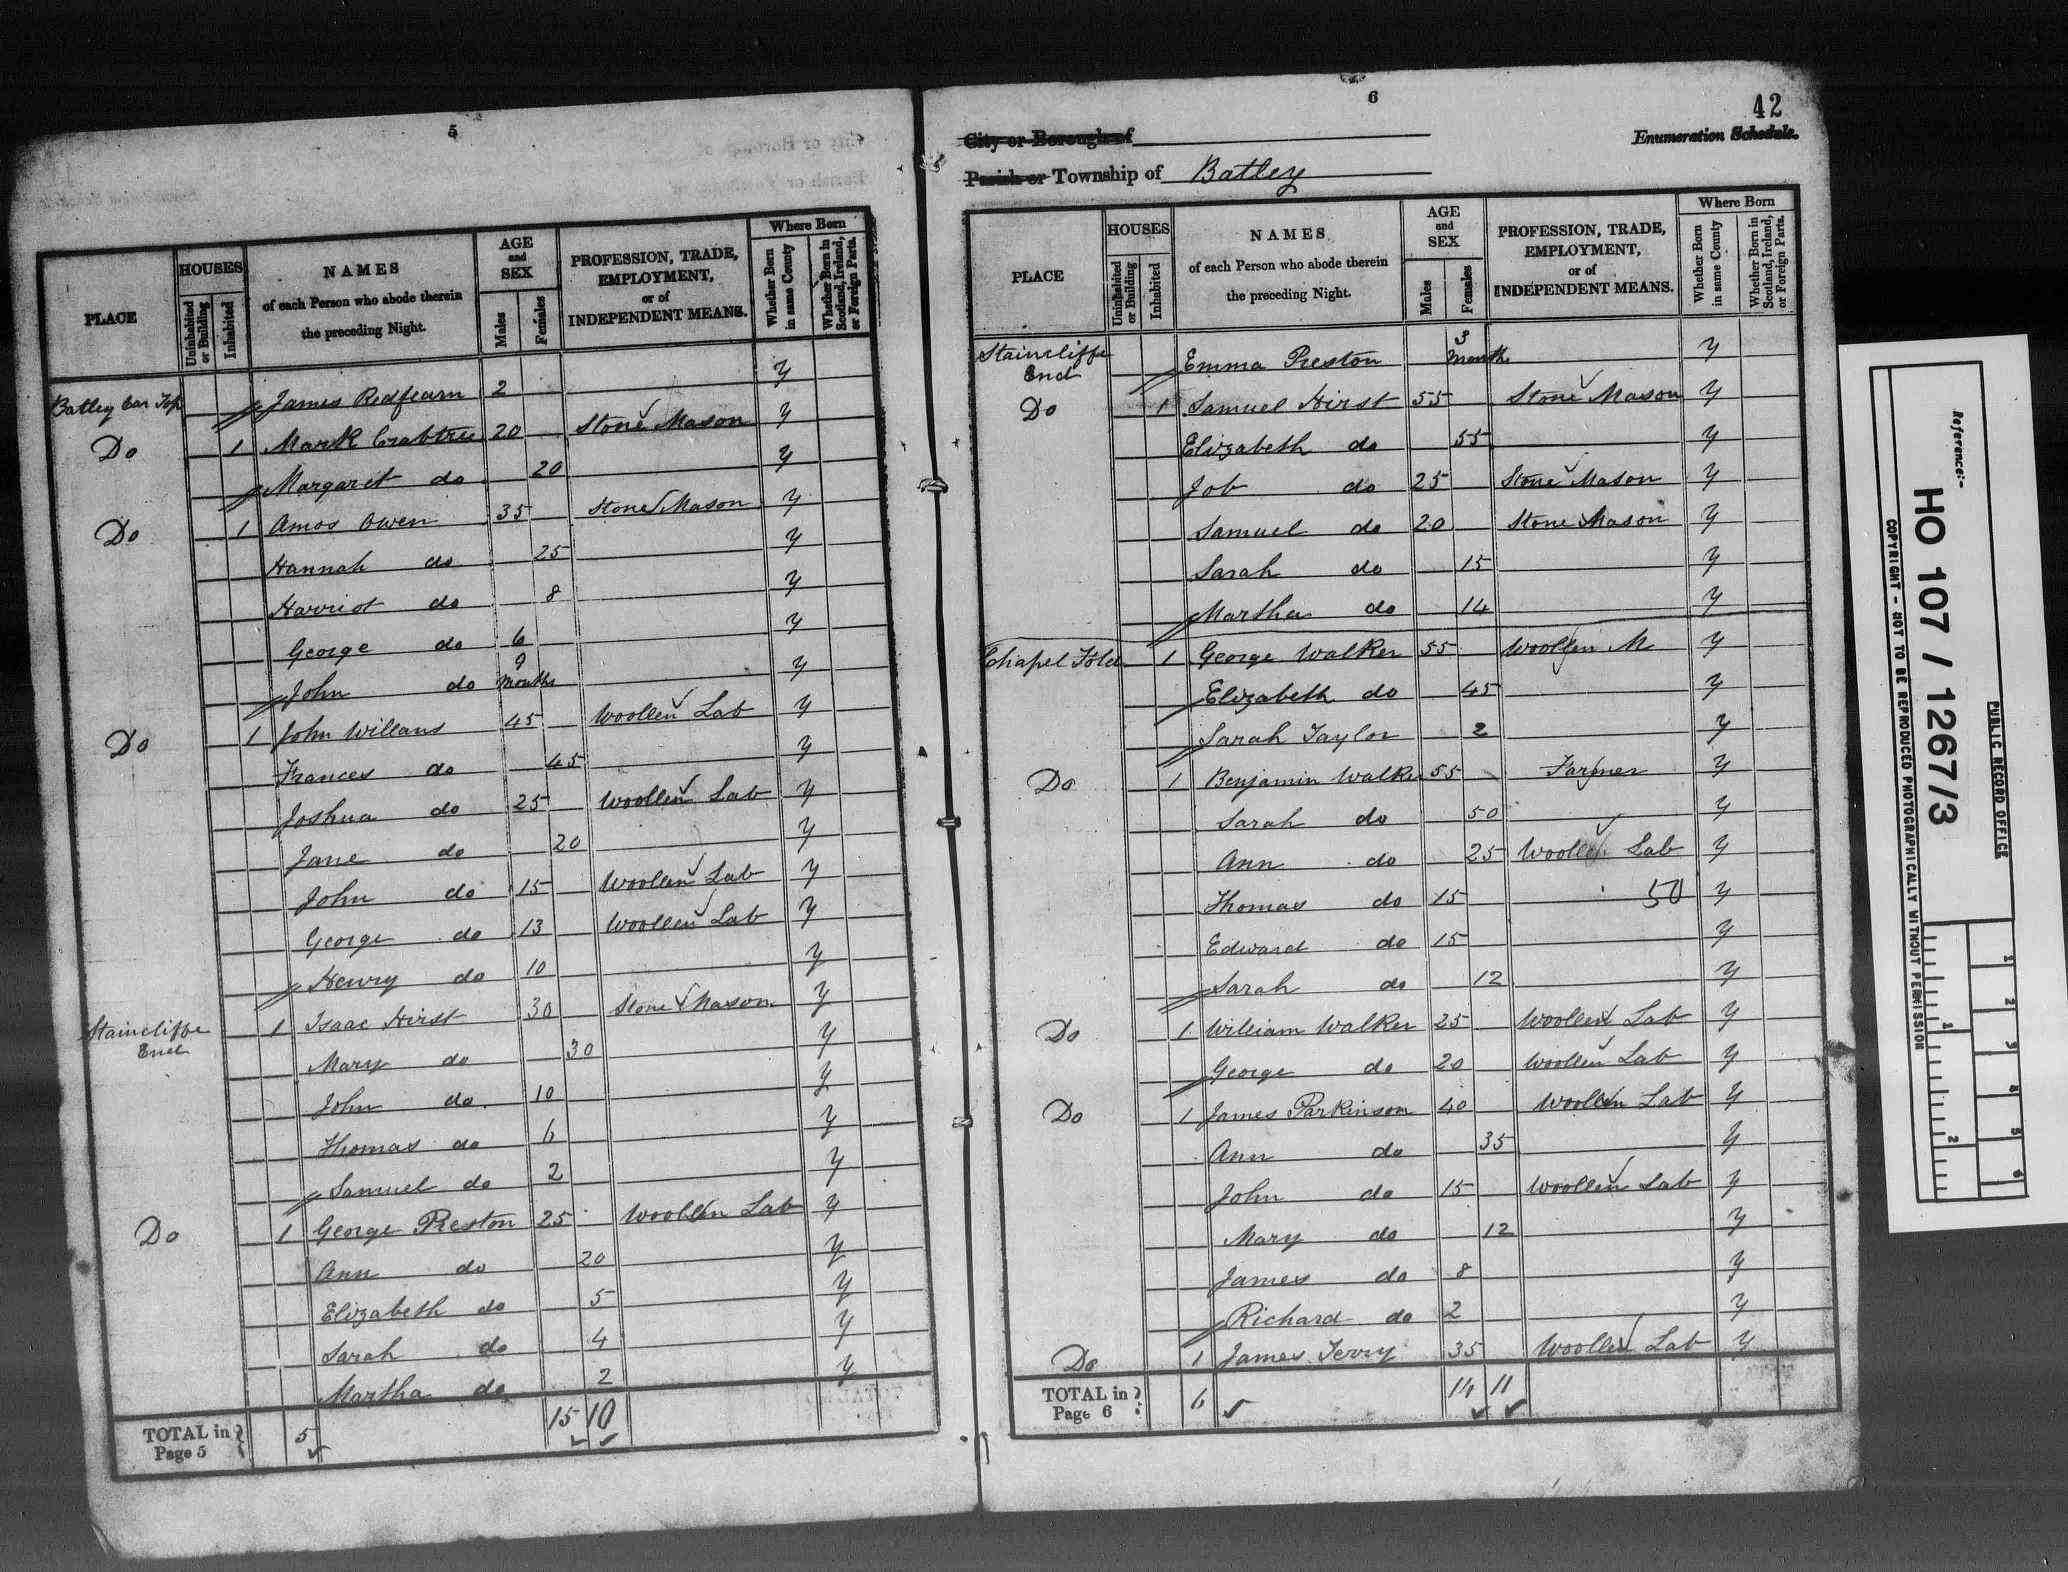 5
PLACE
HOUSES
Uninhabited or Building
Inhabited
NAMES
of each Person who abode therein
the preceding Night.
AGE
and
SEX
Males
Females
PROFESSION, TRADE,
EMPLOYMENT,
or of
INDEPENDENT MEANS.
Where Born
Whether Born in same County
Whether Born in Scotland, Ireland, or Foreign Parts.
Batley Car Top James Redfearn 2 y
Do 1 Mark Crabtree 20 Stone Mason y
Margaret do 20 y
Do 1 Amos Owen 35 Stone Mason y
Hannah do 25 y
Harriot do 8 y
George do 6 y
John do 9 Months y
Do 1 John Willans 45 Woollen Lab y
Frances do 45 y
Joshua do 25 Woollen Lab y
Jane do 20 y
John do 15 Woollen Lab y
George do 13 Woollen Lab y
Henry do 10 y
Staincliffe End 1 Isaac Hirst 30 Stone Mason y
Mary do 30 y
John do 10 y
Thomas do 6 y
Samuel do 2 y
Do 1 George Preston 25 Woollen Lab y
Ann do 20 y
Elizabeth do 5 y
Sarah do 4 y
Martha do 2 y
TOTAL in Page 5 5 15 10
6
42
City or Borough of
Enumeration Schedule.
Parish or Township of Batley
PLACE
HOUSES
Uninhabited or Building
Inhabited
NAMES
of each Person who abode therein
the preceding Night.
AGE
and
SEX
Males
Females
PROFESSION, TRADE,
EMPLOYMENT,
or of
INDEPENDENT MEANS.
Where Born
Whether Born in same County
Whether Born in Scotland, Ireland, or Foreign Parts.
Staincliffe End Emma Preston 3 Month y
Do 1 Samuel Hirst 55 Stone Mason y
Elizabeth do 55 y
Job do 25 Stone Mason y
Samuel do 20 Stone Mason y
Sarah do 15 y
Martha do 14 y
Chapel Fold 1 George Walker 55 Woollen M y
Elizabeth do 45 y
Sarah Taylor 2 y
Do 1 Benjamin Walker 55 Farmer y
Sarah do 50 y
Ann do 25 Woollen Lab y
Thomas do 15 50 y
Edward do 15 y
Sarah do 12 y
Do 1 William Walker 25 Woollen Lab y
George do 20 Woollen Lab y
Do 1 James Parkinson 40 Woollen Lab y
Ann do 35 y
John do 15 Woollen Lab y
Mary do 12 y
James do 8 y
Richard do 2 y
Do 1 James Terry 35 Woollen Lab y
TOTAL in Page 6 6 14 11
Reference:-
HO 107 / 1267/3
PUBLIC RECORD OFFICE
COPYRIGHT - NOT TO BE REPRODUCED PHOTOGRAPHICALLY WITHOUT PERMISSION